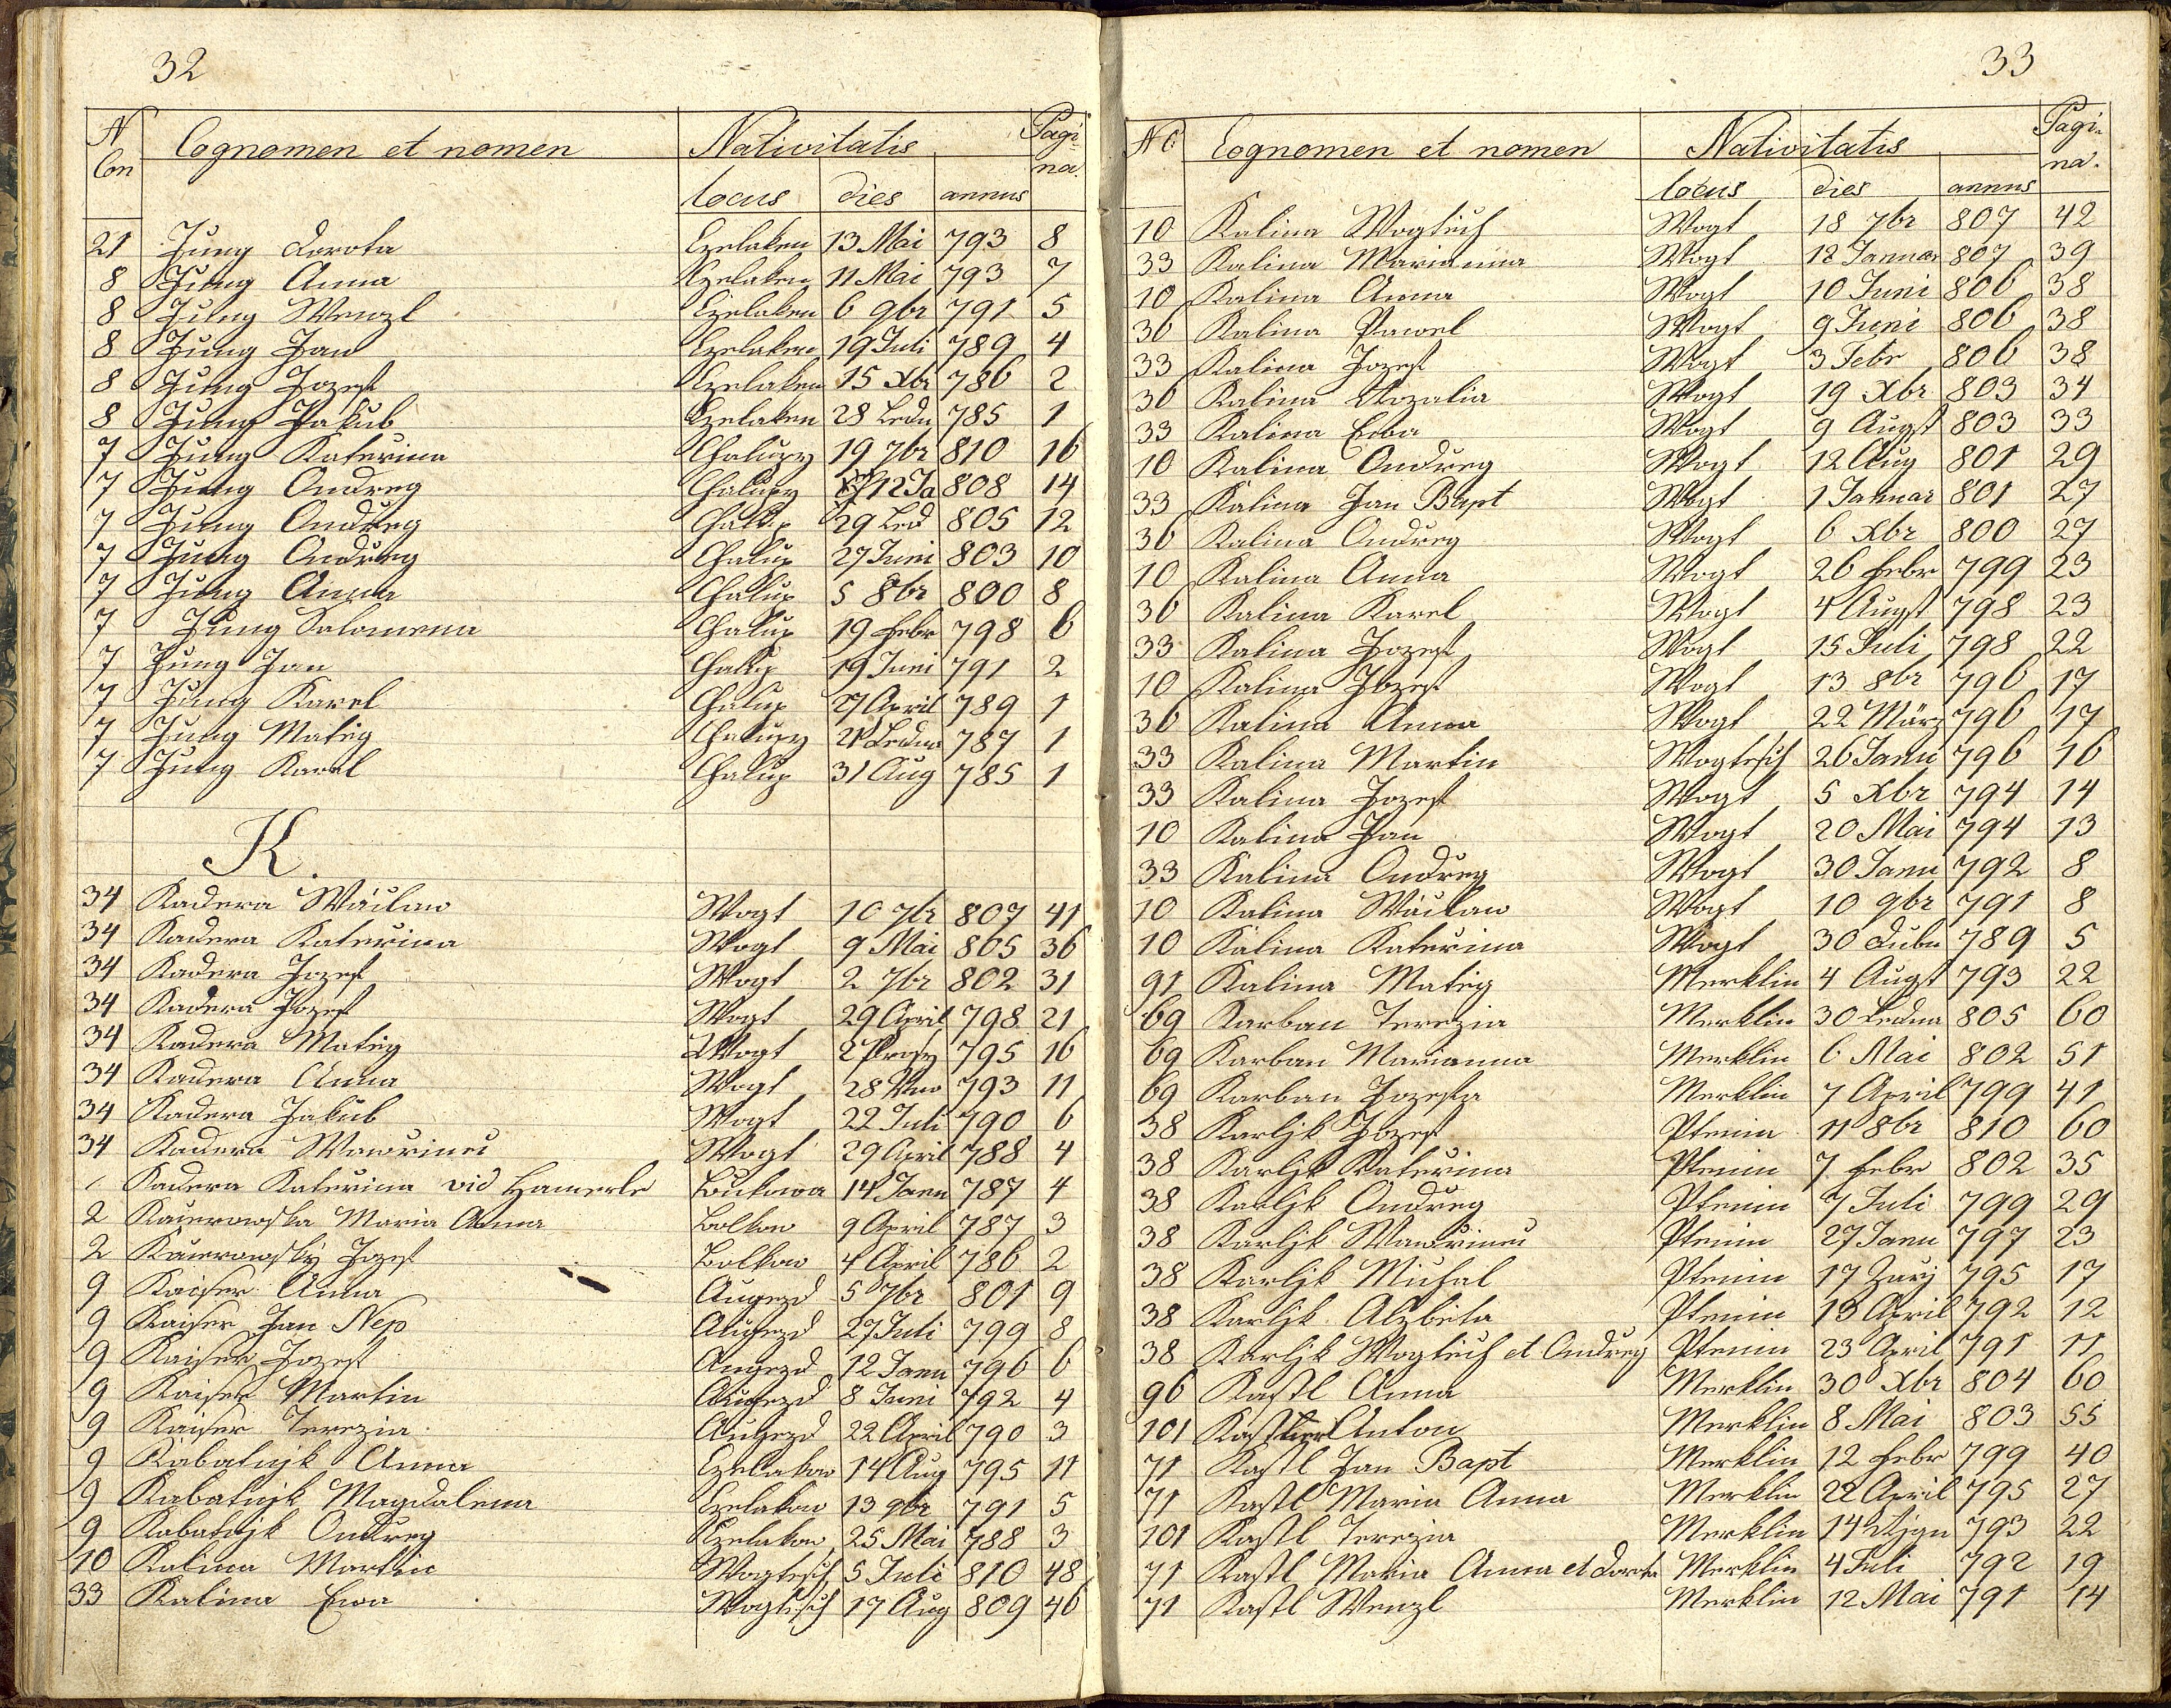 32
N Con Cognomen et nomen Nativitatis Pagi-na.
locus dies annus
21 Jung Dorota Ezelaken 13 Mai 793 8
8 Jung Anna Ezelaken 11 Mai 793 7
8 Jung Wenzl Ezelaken 6 9br 791 5
8 Jung Jan Ezelaken 19 Juli 789 4
8 Jung Jozef Ezelaken 15 Xbr 786 2
8 Jung Jakub Ezelaken 28 Ledn 785 1
7 Jung Kateřina Chalupy 19 7br 810 16
7 Jung Ondreg Chalupy 12 Ja 808 14
7 Jung Ondreg Chalup 29 Led 805 12
7 Jung Ondreg Chalup 27 Juni 803 10
7 Jung Anna Chalup 5 8br 800 8
7 Jung Salomena Chalup 19 Febr 798 6
7 Jung Jan Chalup 19 Juni 791 2
7 Jung Karel Chalup 27 April 789 1
7 Jung Matěg Chalupy 21 Ledna 787 1
7 Jung Karel Chalup 31 Aug 785 1
K.
34 Kadera Wáclaw Wogt 10 7br 807 41
34 Kadera Kateřina Wogt 9 Mai 805 36
34 Kadera Jozef Wogt 2 7br 802 31
34 Kadera Jozef Wogt 29 April 798 21
34 Kadera Matěg Wogt 2 Prosy 795 16
34 Kadera Anna Wogt 28 793 11
34 Kadera Jakub Wogt 22 Juli 790 6
34 Kadera Wawřinec Wogt 29 April 788 4
Kadera Kateřina vid Hamerle Bukowa 14 Janu 787 4
2 Kacerowska Maria Anna Bolkow 9 April 787 3
2 Kacerowský Jozef Bolkow 4 April 786 2
9 Kaiser Anna Augezd 5 7br 801 9
9 Kaiser Jan Nep Augezd 27 Juli 799 8
9 Kaiser Jozef Augezd 12 Janu 796 6
9 Kaiser Martin Augezd 8 Juni 792 4
9 Kaiser Terezia Augezd 22 April 790 3
9 Kabatnjk Anna Ezelakow 14 Aug 795 11
9 Kabatnjk Magdalena Ezelakow 13 9br 791 5
9 Kabatnjk Ondreg Ezelakow 25 Mai 788 3
10 Kalina Martin Wogtesch 5 Juli 810 48
33 Kalina Ewa Wogtesch 17 Aug 809 46
33
N C Cognomen et nomen Nativitatis Pagi-na.
locus dies annus
10 Kalina Wogtěch Wogt 18 7br 807 42
33 Kalina Marianna Wogt 12 Januar 807 39
10 Kalina Anna Wogt 10 Juni 806 38
36 Kalina Pawel Wogt 9 Juni 806 38
33 Kalina Jozef Wogt 3 Febr 806 38
36 Kalina Rozalia Wogt 19 Xbr 803 34
33 Kalina Ewa Wogt 9 Augst 803 33
10 Kalina Ondreg Wogt 12 Aug 801 29
33 Kalina Jan Bapt Wogt 1 Januar 801 27
36 Kalina Ondreg Wogt 6 Xbr 800 27
10 Kalina Anna Wogt 26 Febr 799 23
36 Kalina Karel Wogt 4 Augst 798 23
33 Kalina Jozef Wogt 15 Juli 798 22
10 Kalina Jozef Wogt 13 8br 796 17
36 Kalina Anna Wogt 22 März 796 17
33 Kalina Martin Wogtesch 26 Janu 796 16
33 Kalina Jozef Wogt 5 Xbr 794 14
10 Kalina Jan Wogt 20 Mai 794 13
33 Kalina Ondreg Wogt 30 Janu 792 8
10 Kalina Wáclaw Wogt 10 9br 791 8
10 Kalina Kateřina Wogt 30 Dubn 789 5
91 Kalina Matěg Merklin 4 Augst 793 22
69 Karban Terezia Merklin 30 Ledna 805 60
69 Karban Marianna Merklin 6 Mai 802 51
69 Karban Jozefa Merklin 7 April 799 41
38 Karljk Jozef Ptenin 11 8br 810 60
38 Karljk Kateřina Ptenin 7 Febr 802 35
38 Karljk Ondreg Ptenin 7 Juli 799 29
38 Karljk Wawřinec Ptenin 27 Janu 797 23
38 Karljk Michal Ptenin 17 Zary 795 17
38 Karljk Alzbeta Ptenin 13 April 792 12
38 Karljk Wogtěch et Ondreg Ptenin 23 April 791 11
96 Kastl Anna Merklin 30 Xbr 804 60
101 Kastner Anton Merklin 8 Mai 803 55
71 Kastl Jan Bapt Merklin 12 Febr 799 40
71 Kastl Maria Anna Merklin 22 April 795 27
101 Kastl Terezia Merklin 14 Rjgn 793 22
71 Kastl Maria Anna et Dorota Merklin 4 Juli 792 19
71 Kastl Wenzl Merklin 12 Mai 791 14